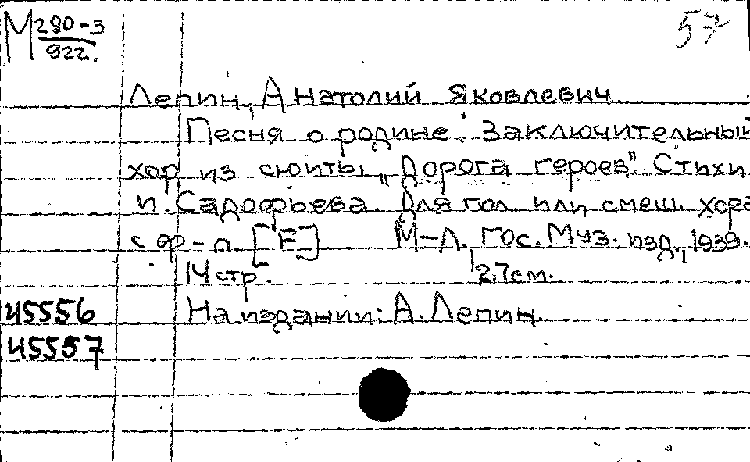 М 280-3 57
922.
Лепин, Анатолий Яковлевич
Песня о родине. Заключительный
хор из сюиты „Дорога героев". Стихи
И. Садофьева. Для гол. или смеш. хора
с ф-п. [F] М-Л. Гос. Муз. изд., 1939.
14 стр. 27 см.
45556 На издании: А. Лепин.
45557